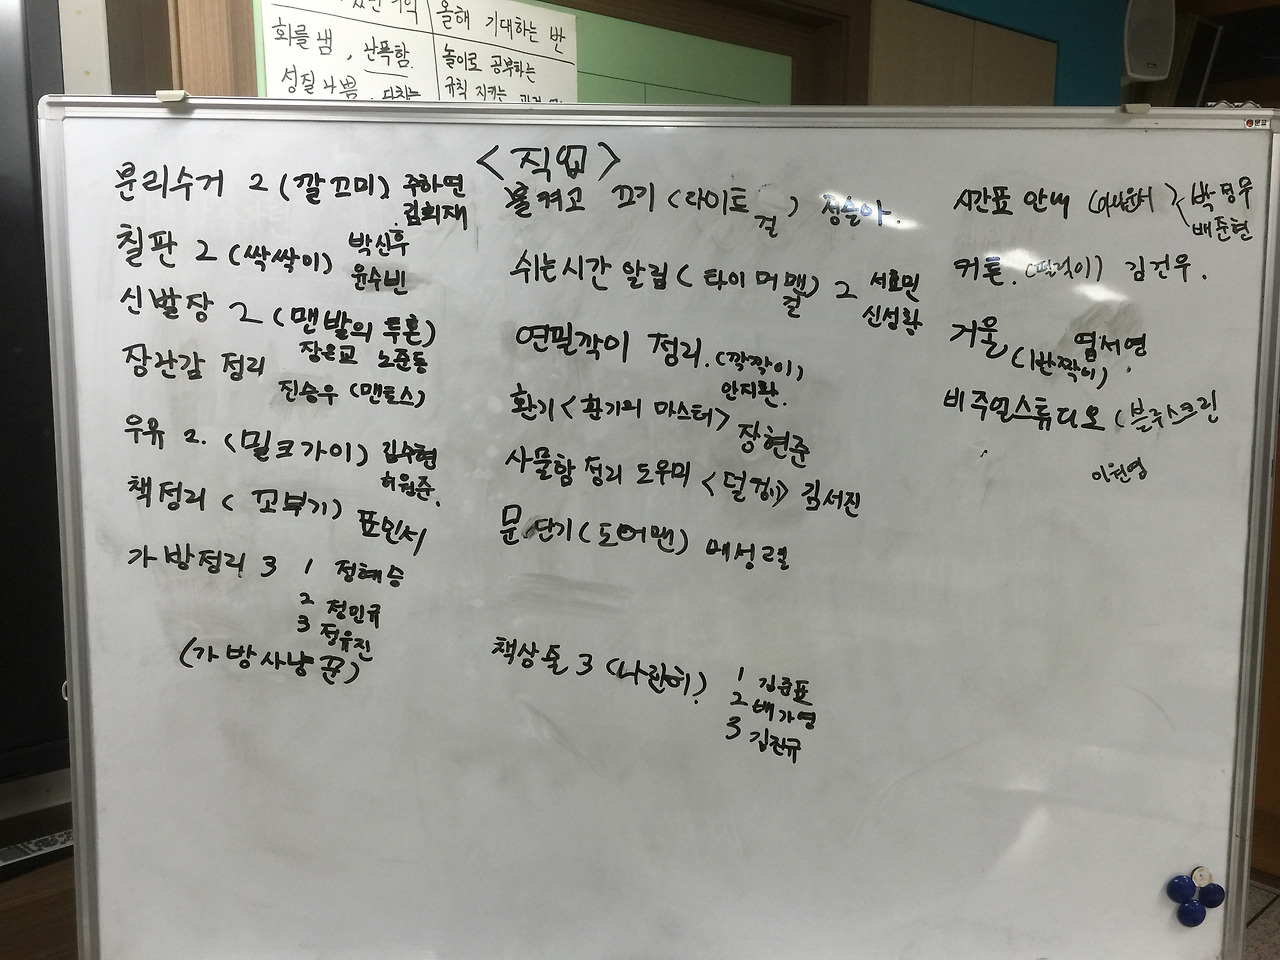 올해 기대하는 반
화를 냄, 난폭함.
놀이로 공부하는
성질 나쁨.
규칙 지키는
문교
<직업>
분리수거 2 (깔끄미) 주하연
김희재
칠판 2 (싹싹이) 박신후
윤수빈
신발장 2 (맨발의 투혼)
장은교 노준동
장난감 정리
진승우 (맨토스)
우유 2. (밀크가이) 김수현
허원준.
책정리 ( 꼬부기) 표민서
가방정리 3 1 정혜승
2 정민규
3 정유진
(가방사냥꾼)
불켜고 끄기 <라이트걸> 정슬아.
쉬는시간 알림 ( 타이머맨걸) 2 서효민
신성확
연필깎이 정리. (깍깍이)
안지환.
환기 <환기의 마스터> 장현준
사물함 정리 도우미 <덜렁이> 김서진
문 닫기 (도어맨)
책상줄 3 (나란히) 1 김준표
2 배가영
3 김진규
시간표 안내 (아나운서) 박정우
배준현
커튼. 김건우.
거울 염서영.
(반짝이)
비주얼스튜디오 (블루스크린
이원영